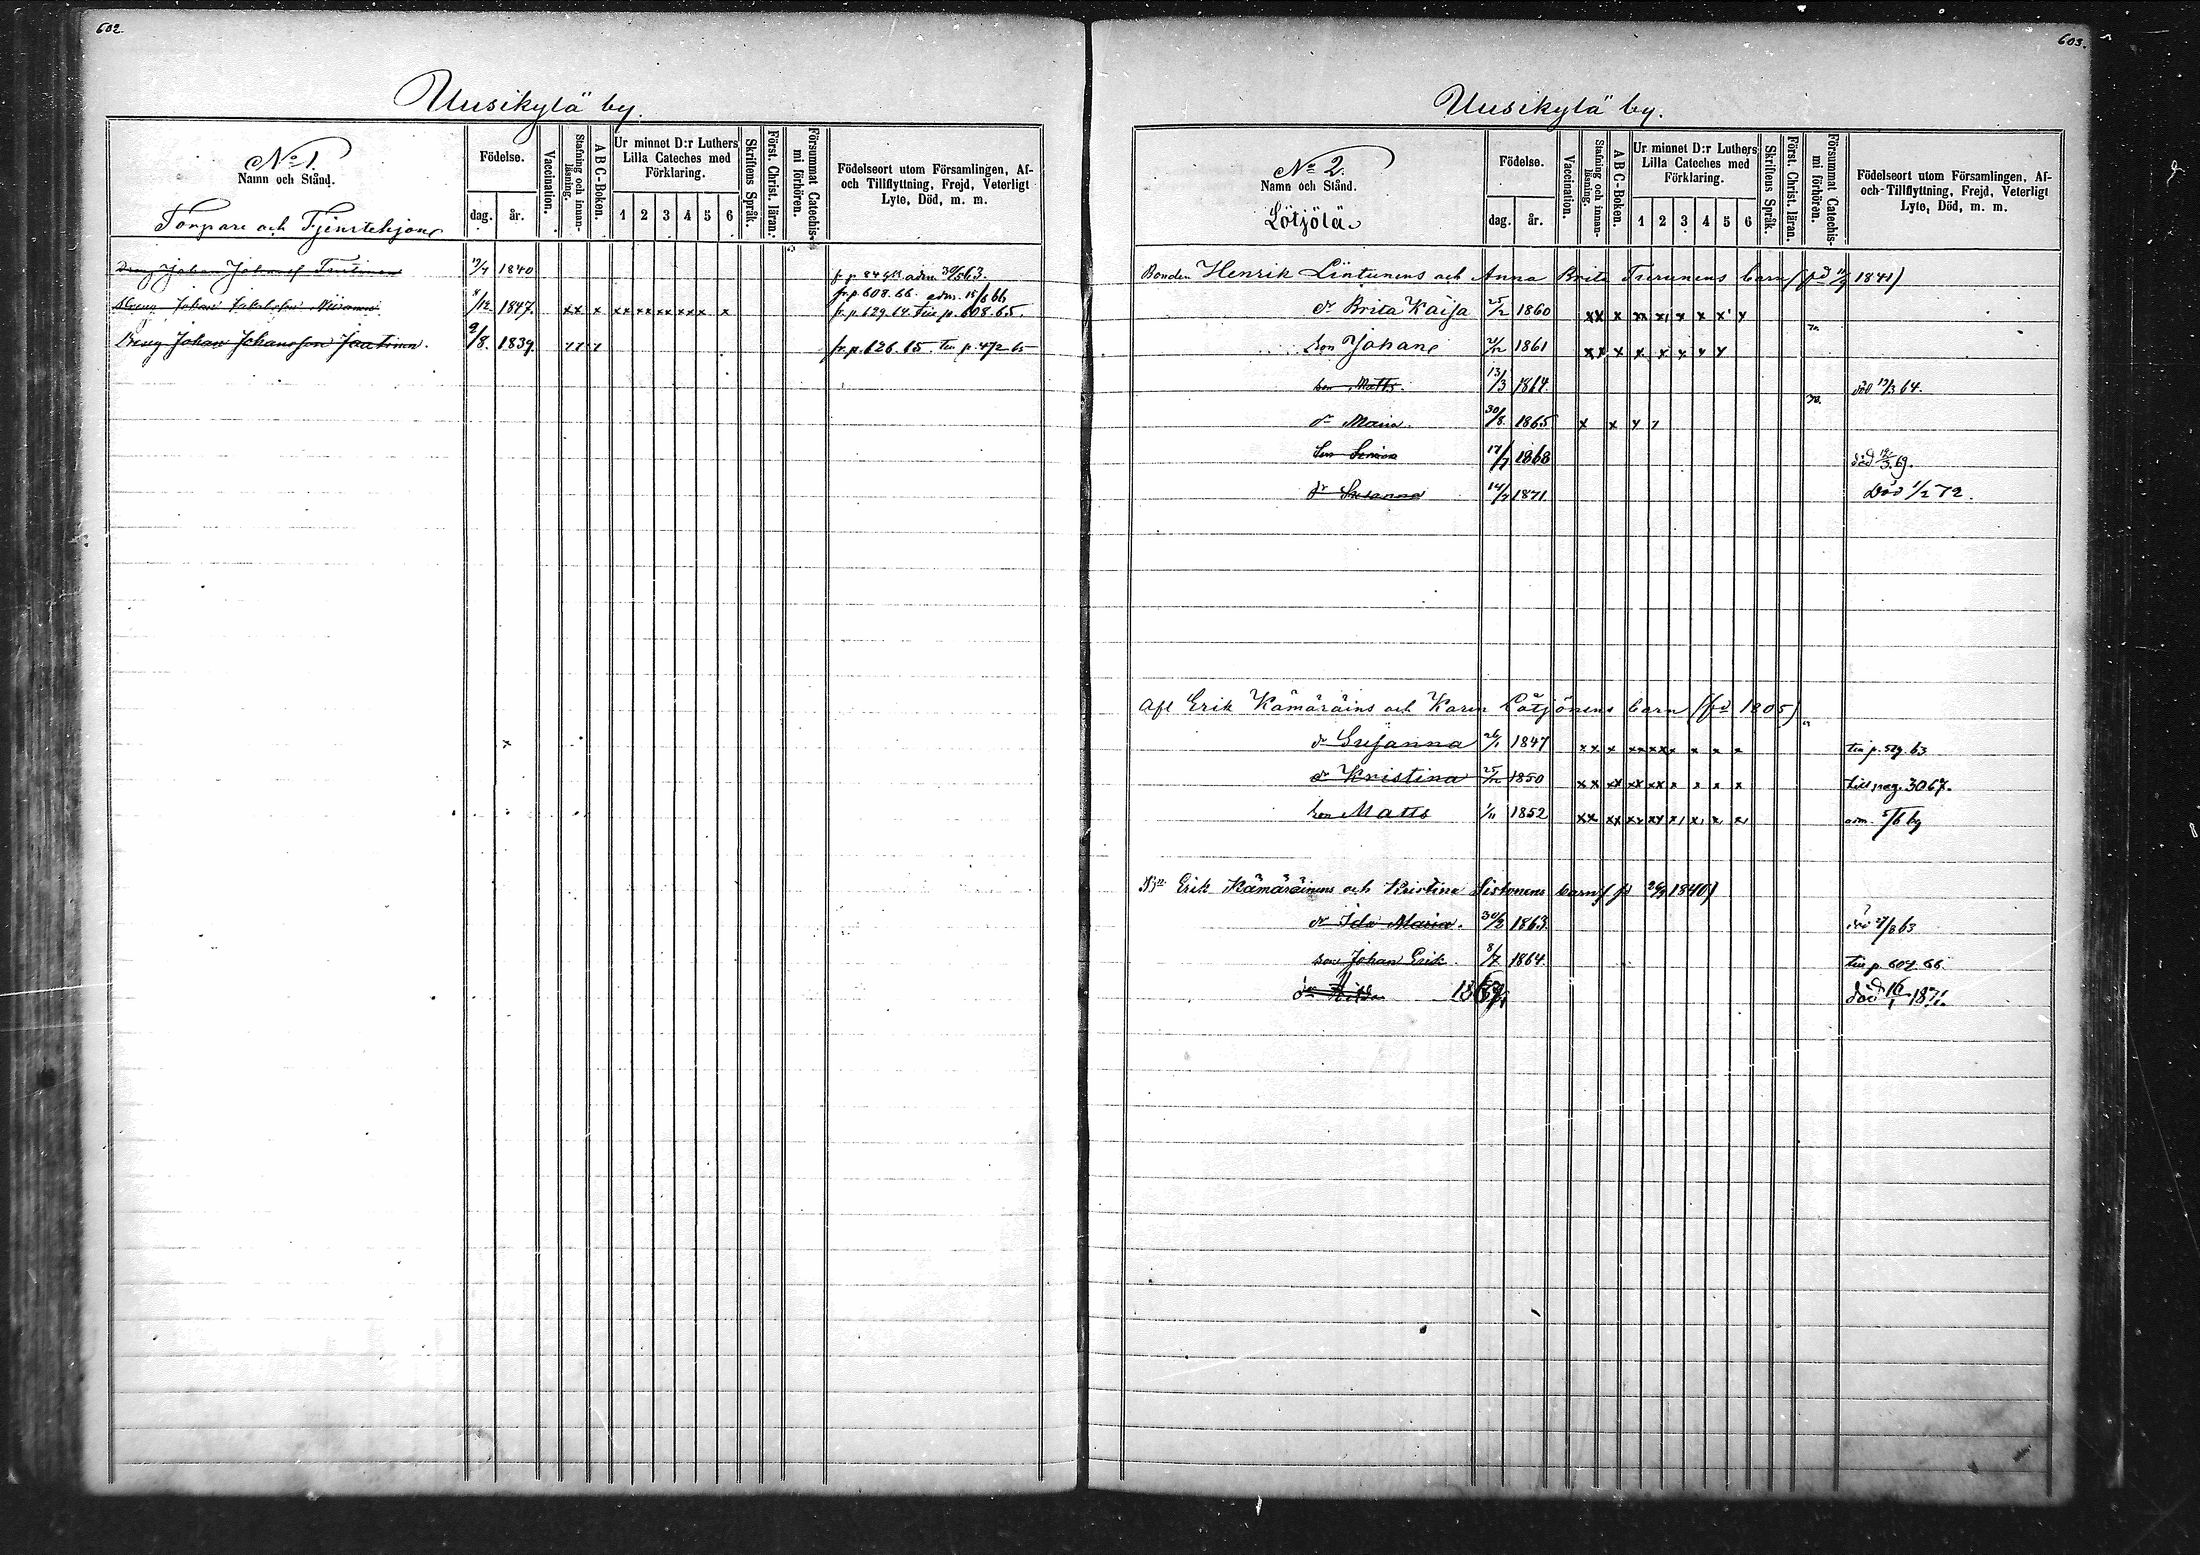 602.
Uusikylä by.
No 1.
Namn och Stånd.
Torpare och Tjenstehjon
Födelse.
dag.
år.
Vaccination.
Stafning och innanläsning.
A B C-Boken.
Ur minnet D:r Luthers
Lilla Cateches med
Förklaring.
1 2 3 4 5 6
Skriftens Språk.
Först. Christ. läran.
Försummat Catechismi förhören.
Födelseort utom Församlingen, Af-
och Tillflyttning, Frejd, Veterligt
Lyte, Död, m. m.
Dreng Johan 1840 fr. p. 84 adm. 63.
fr. p. 608. 66. adm. 15/6 66
Dreng Johan 8/12 1847. xx x xx xx xx x x x fr. p. 629. 64. Till p. 608. 65.
Dreng Johan Johansson Jaatinen. 9/8. 1839. fr. p. 626. 65. Till p. 472 65
603.
Uusikylä by.
No 2.
Namn och Stånd.
Lötjölä
Födelse.
dag.
år.
Vaccination.
Stafning och innanläsning.
A B C-Boken.
Ur minnet D:r Luthers
Lilla Cateches med
Förklaring.
1 2 3 4 5 6
Skriftens Språk.
Först. Christ. läran.
Försummat Catechismi förhören.
Födelseort utom Församlingen, Af-
och Tillflyttning, Frejd, Veterligt
Lyte, Död, m. m.
Bonden Henrik Lintunens och Anna Brita Turunens barn (fd 1841)
dr Brita Kaisa 25/2 1860 xx x xx x x x x x
70.
son Johan 21/12 1861 xx x x x x x x
son Matts. 13/3 1864. död 17/3 64.
70.
dr Maria. 30/8. 1865 x x x x
Son Simon 17/7 1868 död 69.
dr Susanna 14/7 1871 Död 1/2 72.
Afl Erik Kämäräins och Karin Lötjönens barn (fd 1805)
dr Susanna 26/1 1847 xx x xx xx x x x till p. 529. 63
dr Kristina 25/12 1850 xx xx xx xx x x x x till pag. 30 67.
son Matts 1/11 1852 xx xx xx xx x x x x adm. 5/6 69
Bn Erik Kämäräinens och Kristina Sistonens barn (fd 1840)
dr Ida Maria. 30/3 1863. död 27/8 63
son Johan Erik. 8/7 1864. till p. 607. 66.
dr Hilda 1867 död 16/1 1871.